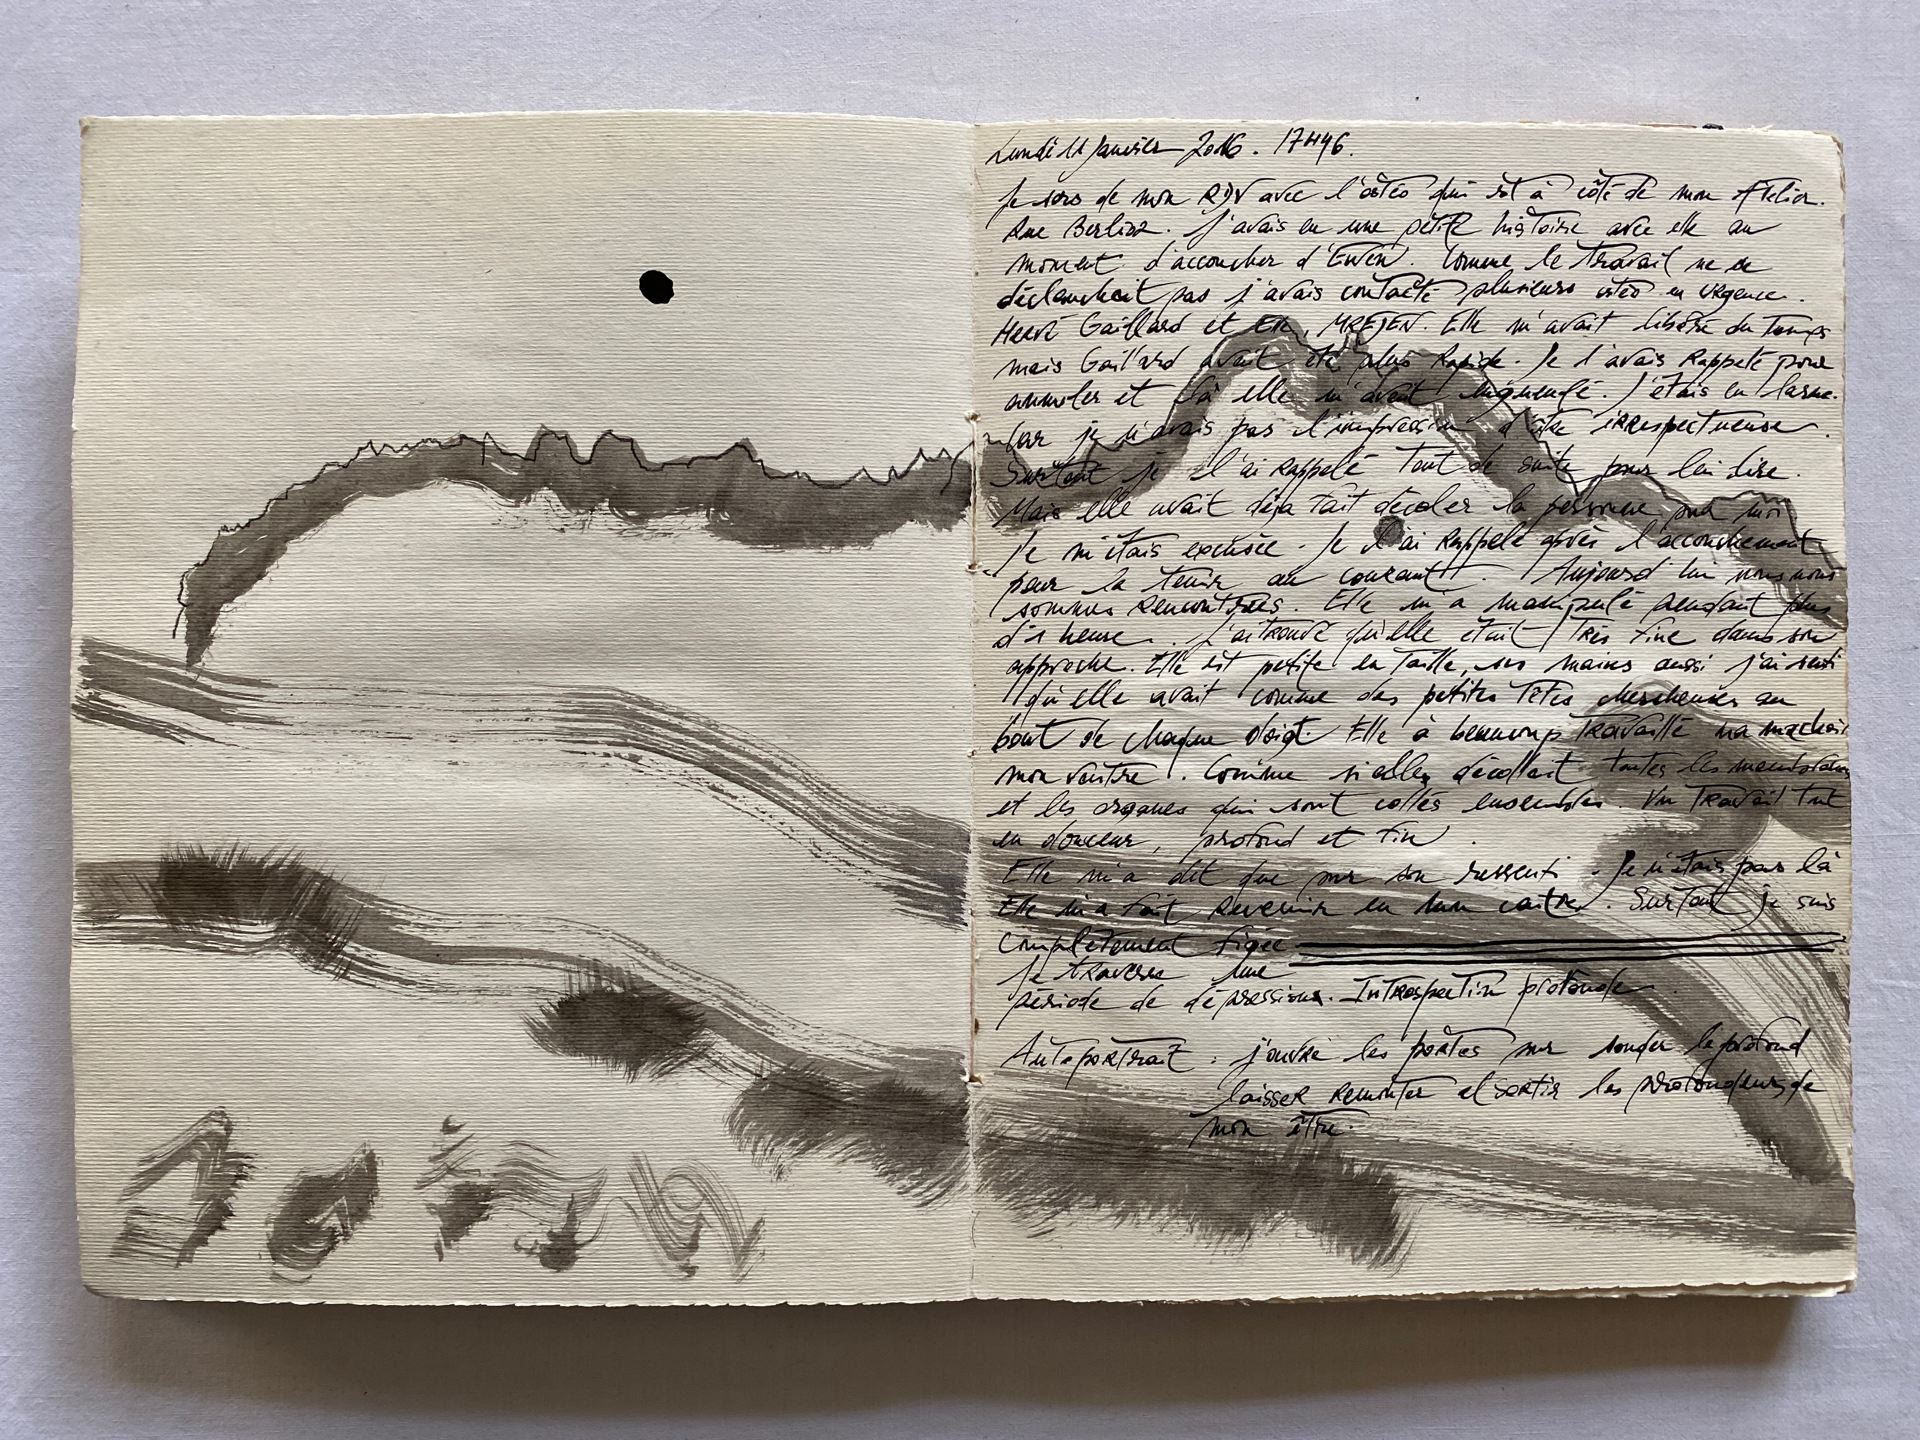 Lundi 11 Janvier 2016. 17H46.
Je sors de mon RDV avec l'ostéo qui est à côté de mon Atelier.
Rue Berlioz. J'avais eu une petite histoire avec elle au
moment d'accoucher d'Ewen. Comme le travail ne se
déclenchait pas j'avais contacté plusieurs ostéo en urgence.
Hervé Gaillard et Elle, MREJEN. Elle m'avait libéré du temps
mais Gaillard avait été plus rapide. Je l'avais rappelé pour
annuler et là elle m'avait engueulé. J'étais en larme.
Car je n'avais pas l'impression d'être irrespectueuse.
Surtout je l'ai rappelé tout de suite pour lui dire.
Mais elle avait déjà fait décaler la personne pour moi
Je m'étais excusée. Je l'ai rappelé après l'accouchement
pour la tenir au courant. Aujourd'hui nous nous
sommes rencontrées. Elle m'a manipulé pendant plus
d'1 heure. J'ai trouvé qu'elle était très fine dans son
approche. Elle est petite en taille, ses mains aussi j'ai senti
qu'elle avait comme des petites têtes chercheuses au
bout de chaque doigt. Elle à beaucoup travaillé ma machoi
mon ventre. Comme si elle décollait toutes les membranes
et les organes qui sont collés ensembles. Un travail tout
en douceur, profond et fin.
Elle m'a dit que sur son ressenti. Je n'étais pas là
Elle m'a fait revenir en mon centre. Surtout je suis
complètement figée
Je traverse une
période de dépression. Introspection profonde
Autoportrait : j'ouvre les portes sur sonder le profond
laisser remonter et sortir les profondeurs de
mon être.